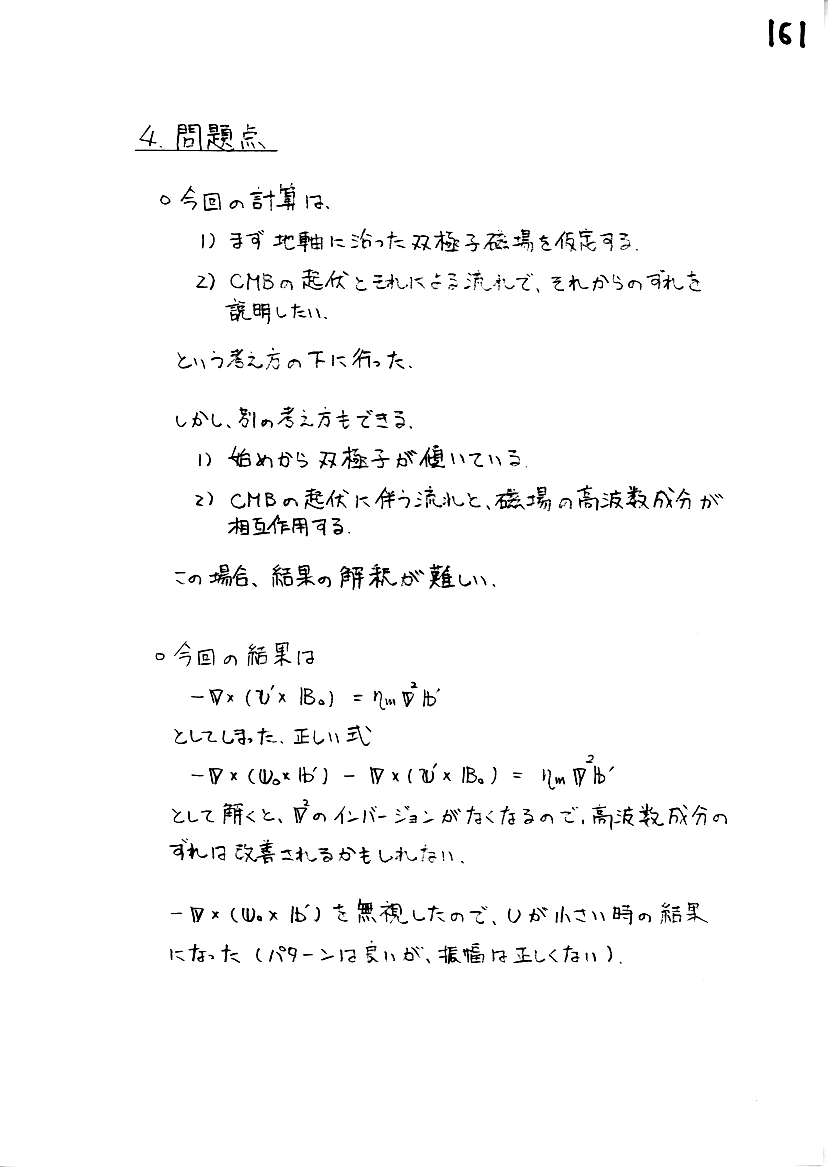 161
4. 問題点
○ 今回の計算は、
1) まず 地軸に沿った 双極子磁場を仮定する.
2) CMBの起伏とそれによる流れで、それからのずれを
説明したい.
という考え方の下に行った.
しかし、別の考え方もできる.
1) 始めから 双極子が傾いている.
2) CMBの起伏に伴う流れと、磁場の高波数成分が
相互作用する.
この場合、結果の解釈が難しい.
○ 今回の結果は
−∇×(𝕦′×𝔹₀) = ηₘ∇²𝕓′
としてしまった. 正しい式
−∇×(𝕦₀×𝕓′) − ∇×(𝕦′×𝔹₀) = ηₘ∇²𝕓′
として解くと、∇²のインバージョンがなくなるので、高波数成分の
ずれは改善されるかもしれない.
−∇×(𝕦₀×𝕓′)を無視したので、Uが小さい時の結果
になった (パターンは良いが、振幅は正しくない).